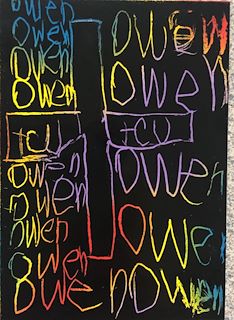 owen
owen
owen
owen
tcu
owen
owen
owen
owen
owen
owen
owen
tcu
owen
owen
owen